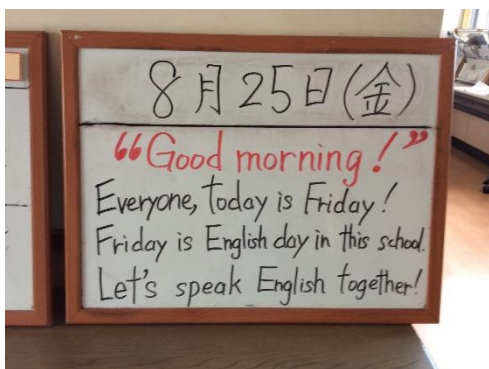 8月25日(金)
“Good morning!”
Everyone, today is Friday!
Friday is English day in this school.
Let's speak English together!